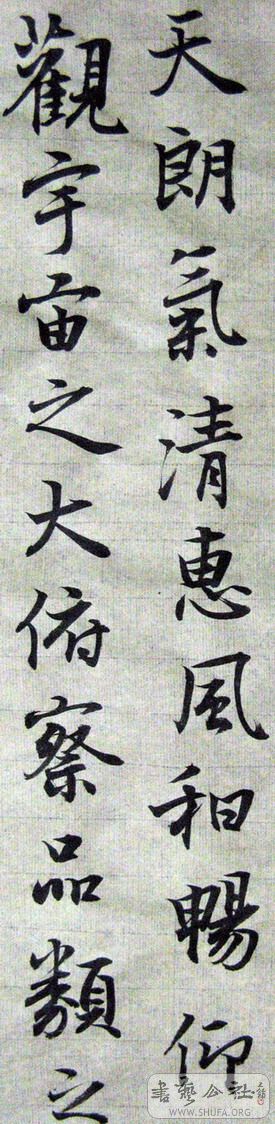 天朗氣清惠風和暢仰
觀宇宙之大俯察品類之
書藝公社
WWW.SHUFA.ORG